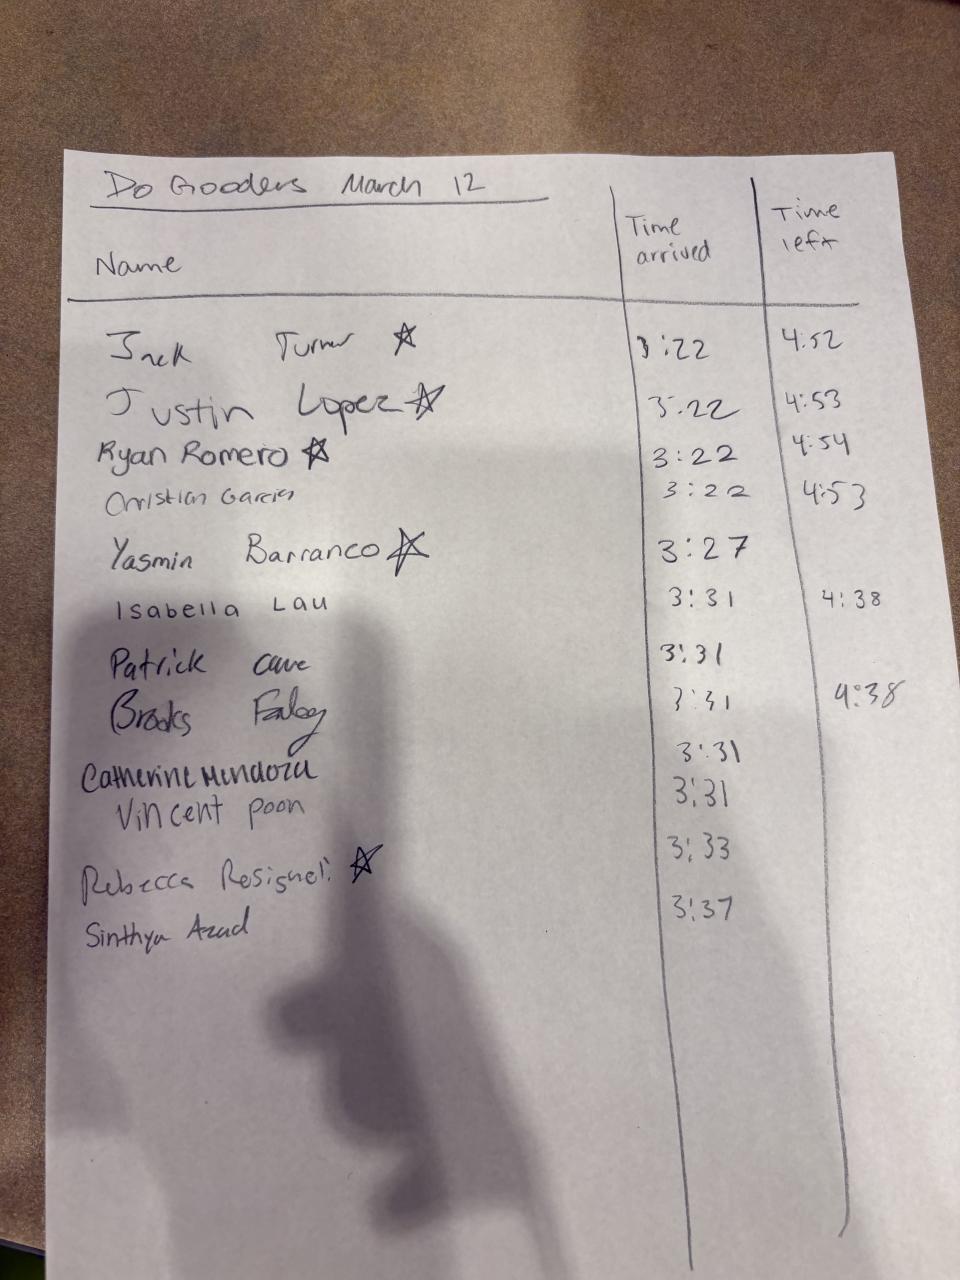 Do Gooders March 12
Name Time arrived Time left
Jack Turner ☆ 3:22 4:52
Justin Lopez ☆ 3:22 4:53
Ryan Romero ☆ 3:22 4:54
Christian Garcia 3:22 4:53
Yasmin Barranco ☆ 3:27
Isabella Lau 3:31 4:38
Patrick 3:31
Brooks 3:31 4:38
Catherine Mendoza 3:31
Vincent poon 3:31
Rebecca ☆ 3:33
Sinthya Azad 3:37